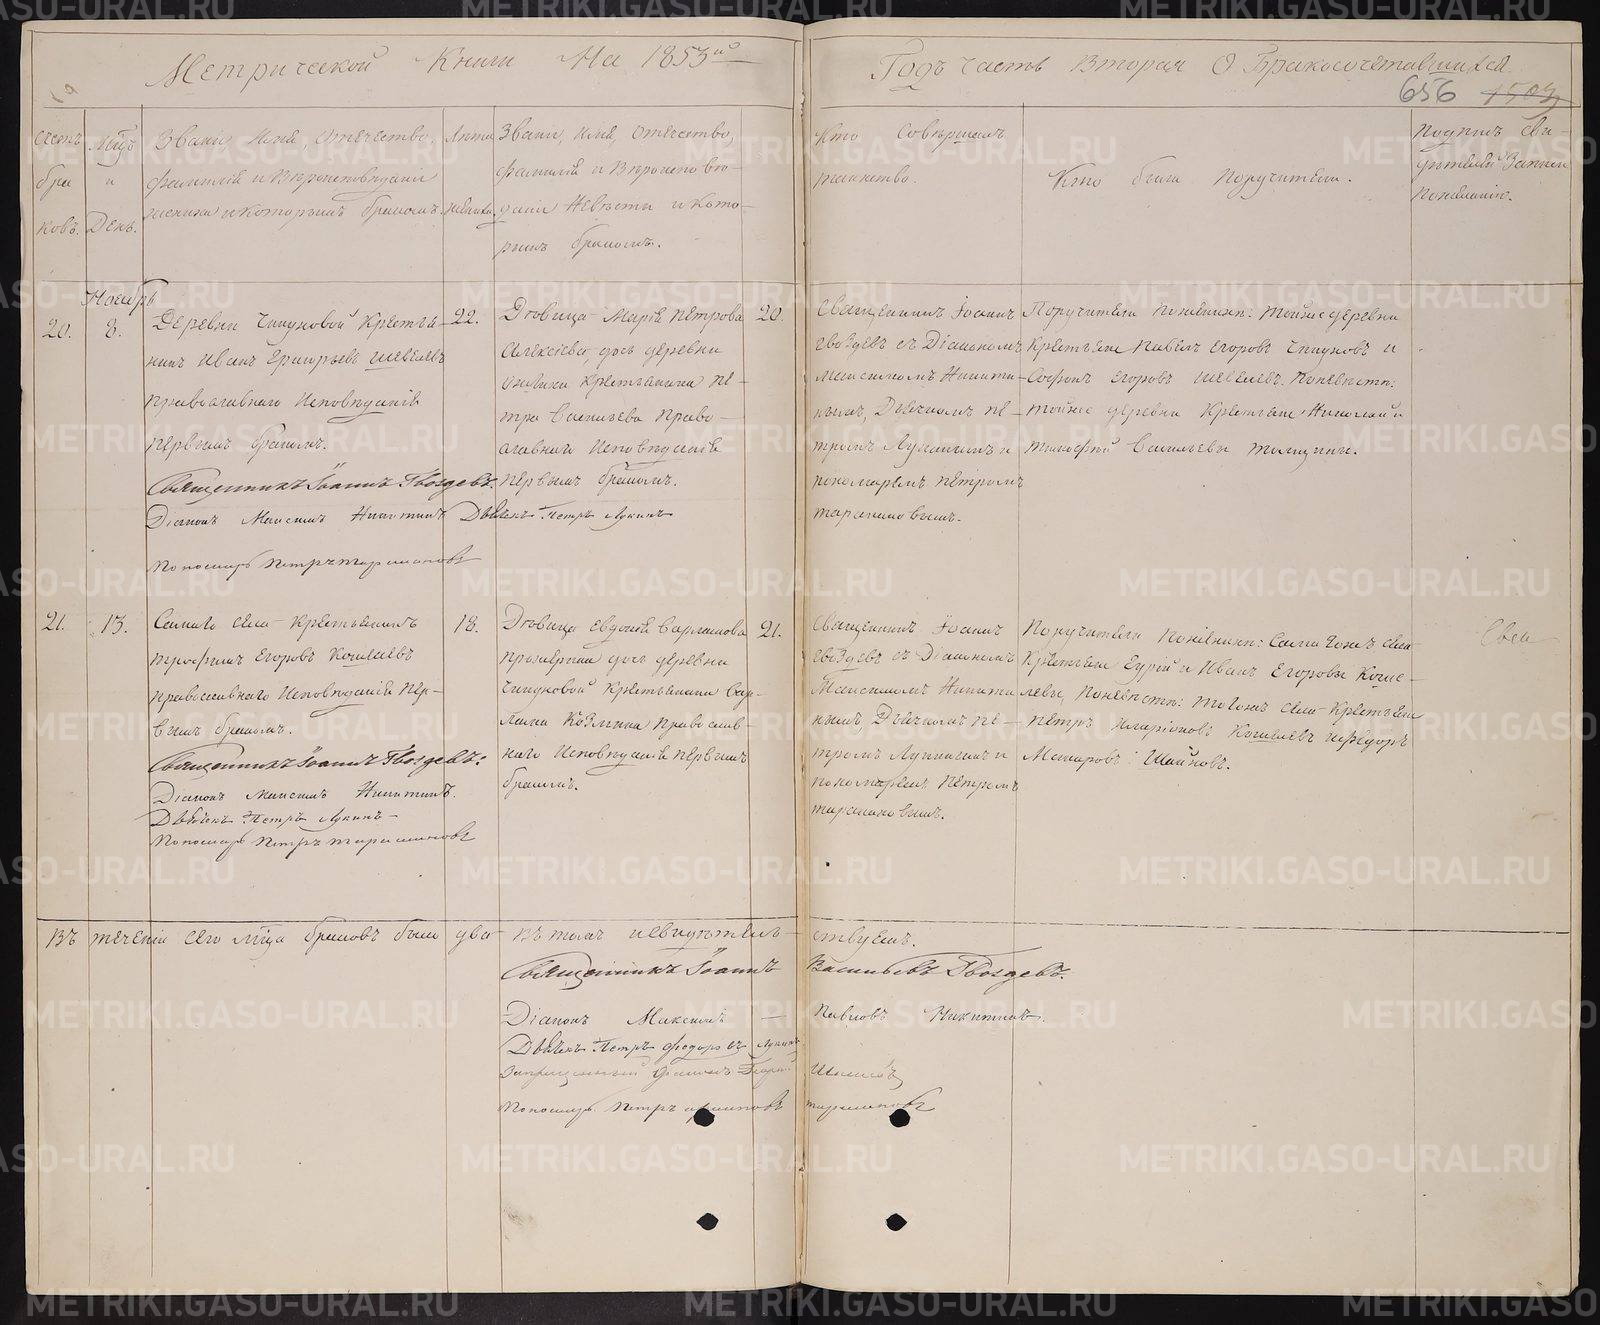 Метрической Книги На 1853й
Годъ часть Вторая О Бракосочетавшихся
656 1503
Счетъ браковъ.
Мцъ и День.
Званіе, Имя, Отчество,
фамилія и Вѣроисповѣданіе
жениха и Которымъ бракомъ.
Лѣта жениха.
Званіе, имя, Отчество,
фамилія и Вѣроисповѣ-
даніе Невѣсты и Кото-
рымъ бракомъ.
Кто Совершалъ
таинство.
Кто были Поручители.
Подпись сви-
дѣтелей Записи
По желанію.
Ноябрь
20. 8.
Деревни Чипуковой Крестья-
нинъ Иванъ Григорьевъ Шевелевъ
православнаго Исповѣданія
первымъ бракомъ.
Священникъ Іоаннъ Гвоздевъ.
Діаконъ Максимъ Никитинъ
Дьячекъ Петръ Лукинъ
Пономарь Петръ Таракановъ
22.
Дѣвица Марія Петрова
Алексіева, дочь деревни
крестьянина Пе-
тра Васильева Право-
славнаго Исповѣданія
первымъ бракомъ.
20.
Священникъ Іоаннъ
Гвоздевъ съ Діакономъ
Максимомъ Никити-
нымъ, Дьячкомъ Пе-
тромъ Лукинымъ и
пономаремъ Петромъ
Таракановымъ.
Поручители По женихѣ: тойже деревни
Крестьяне Павелъ Егоровъ Чипуковъ и
Софронъ Егоровъ Шевелевъ. По невѣстѣ:
тойже деревни Крестьяне Николай и
Тимофей Васильевы
21. 13.
Самаго села Крестьянинъ
Трофимъ Егоровъ Кошелевъ
православнаго Исповѣданія пер-
вымъ бракомъ.
Священникъ Іоаннъ Гвоздевъ:
Діаконъ Максимъ Никитинъ.
Дьячекъ Петръ Лукинъ
Пономарь Петръ Таракановъ
18.
Дѣвица Евдокія Варламова
дочь деревни
Чипуковой Крестьянина Вар-
лама Козмина Православ-
наго Исповѣданія первымъ
бракомъ.
21.
Священникъ Іоаннъ
Гвоздевъ съ Діакономъ
Максимомъ Никити-
нымъ, Дьячкомъ Пе-
тромъ Лукинымъ и
пономаремъ Петромъ
Таракановымъ.
Поручители По женихѣ: Самагожъ села
Крестьяне Гурій и Иванъ Егоровы Коше-
левы, По невѣстѣ: тогожъ села Крестьяне
Петръ Иларіоновъ Кошелевъ и Ѳедоръ
Макаровъ Шайновъ.
Въ теченіи сего мца браковъ было два
Въ томъ и свидѣтель-ствуемъ.
Священникъ Іоаннъ Васильевъ Гвоздевъ.
Діаконъ Максимъ Павловъ Никитинъ.
Дьячекъ Петръ Федоровъ Лукинъ
Пономарь Петръ Таракановъ
METRIKI.GASO-URAL.RU